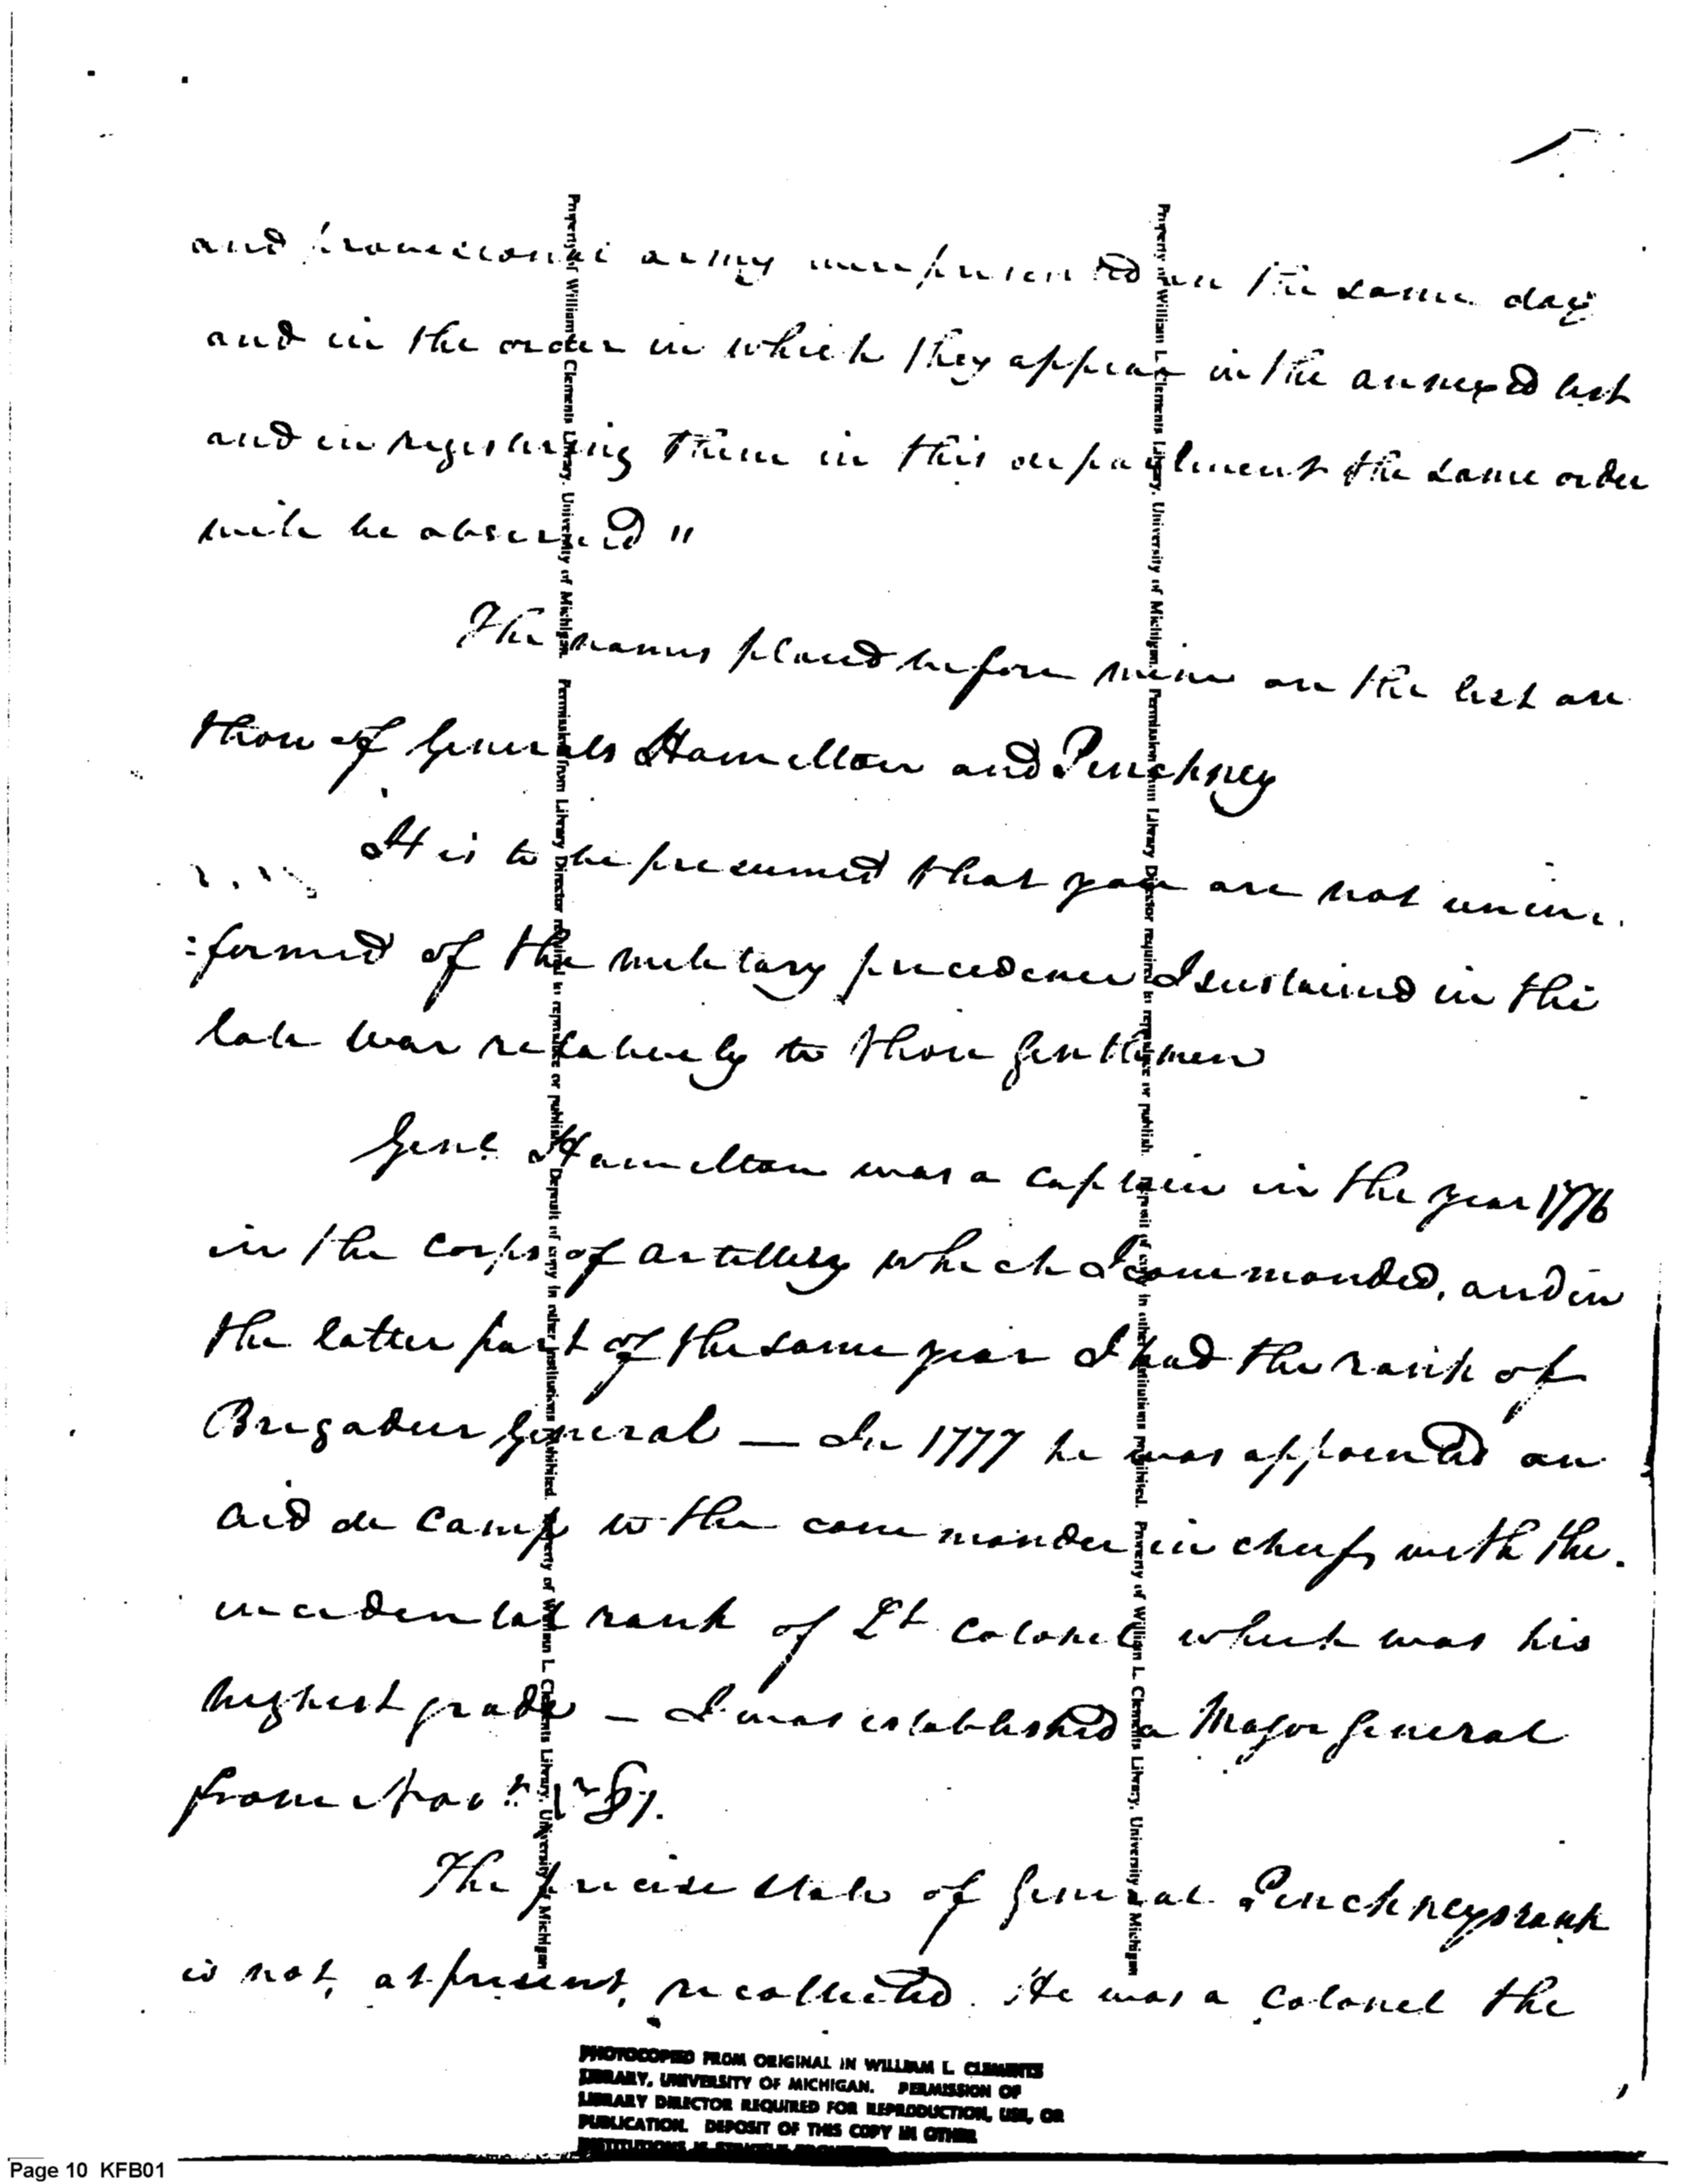 and provisional army were presented on the same day
and in the order in which they appear in the annexed list
and in registering them in this department the same order
will be observed"
The names placed before mine on the list are
those of Generals Hamilton and Pinckney
It is to be presumed that you are not unin
:formed of the military precedence I sustained in the
late war relatively to those gentlemen
Genl. Hamilton was a captain in the year 1776
in the corps of artillery which I commanded, and in
the latter part of the same year I had the rank of
Brigadier General — In 1777 he was appointed an
aid de camp to the commander in chief, with the
incidental rank of Lt Colonel which was his
highest grade — I was established a Major General
from Novr.
The precise state of General Pinckneys rank
is not, at present, recollected. He was a colonel the
Property of William L. Clements Library, University of Michigan. Permission from Library Director required to reproduce or publish. Deposit of copy in other institutions prohibited. Property of William L. Clements Library, University of Michigan
Property of William L. Clements Library, University of Michigan. Permission from Library Director required to reproduce or publish. Deposit of copy in other institutions prohibited. Property of William L. Clements Library, University of Michigan
PHOTOCOPIED FROM ORIGINAL IN WILLIAM L. CLEMENTS
LIBRARY, UNIVERSITY OF MICHIGAN. PERMISSION OF
LIBRARY DIRECTOR REQUIRED FOR REPRODUCTION, USE, OR
PUBLICATION. DEPOSIT OF THIS COPY IN OTHER
INSTITUTIONS IS
Page 10 KFB01